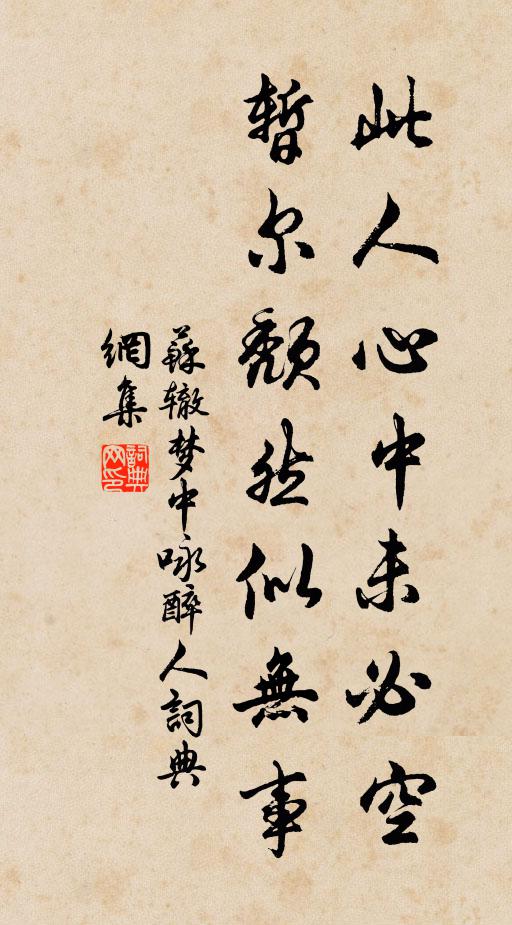 此人心中未必空
暫尔頽然似無事
蘇辙梦中咏醉人詞典
網集
詞典
网印